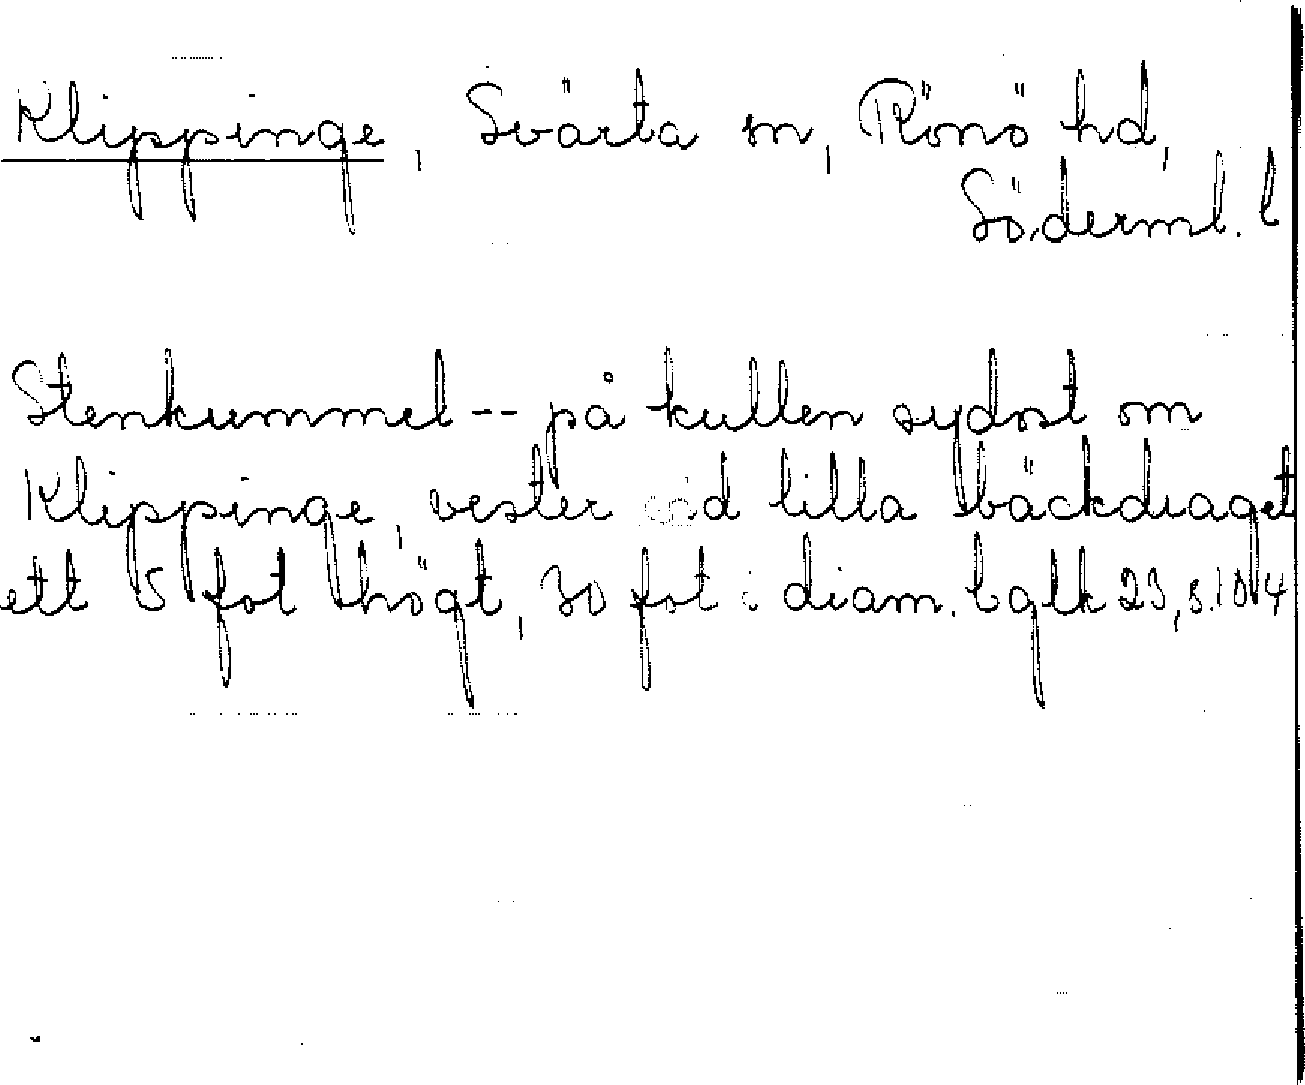 Klippinge, Svärta sn, Rönö hd,
Söderml. l
Stenkummel -- på kullen sydost om
Klippinge, vester vid lilla bäckdraget
ett 5 fot högt, 30 fot i diam. bglk 23, s. 104